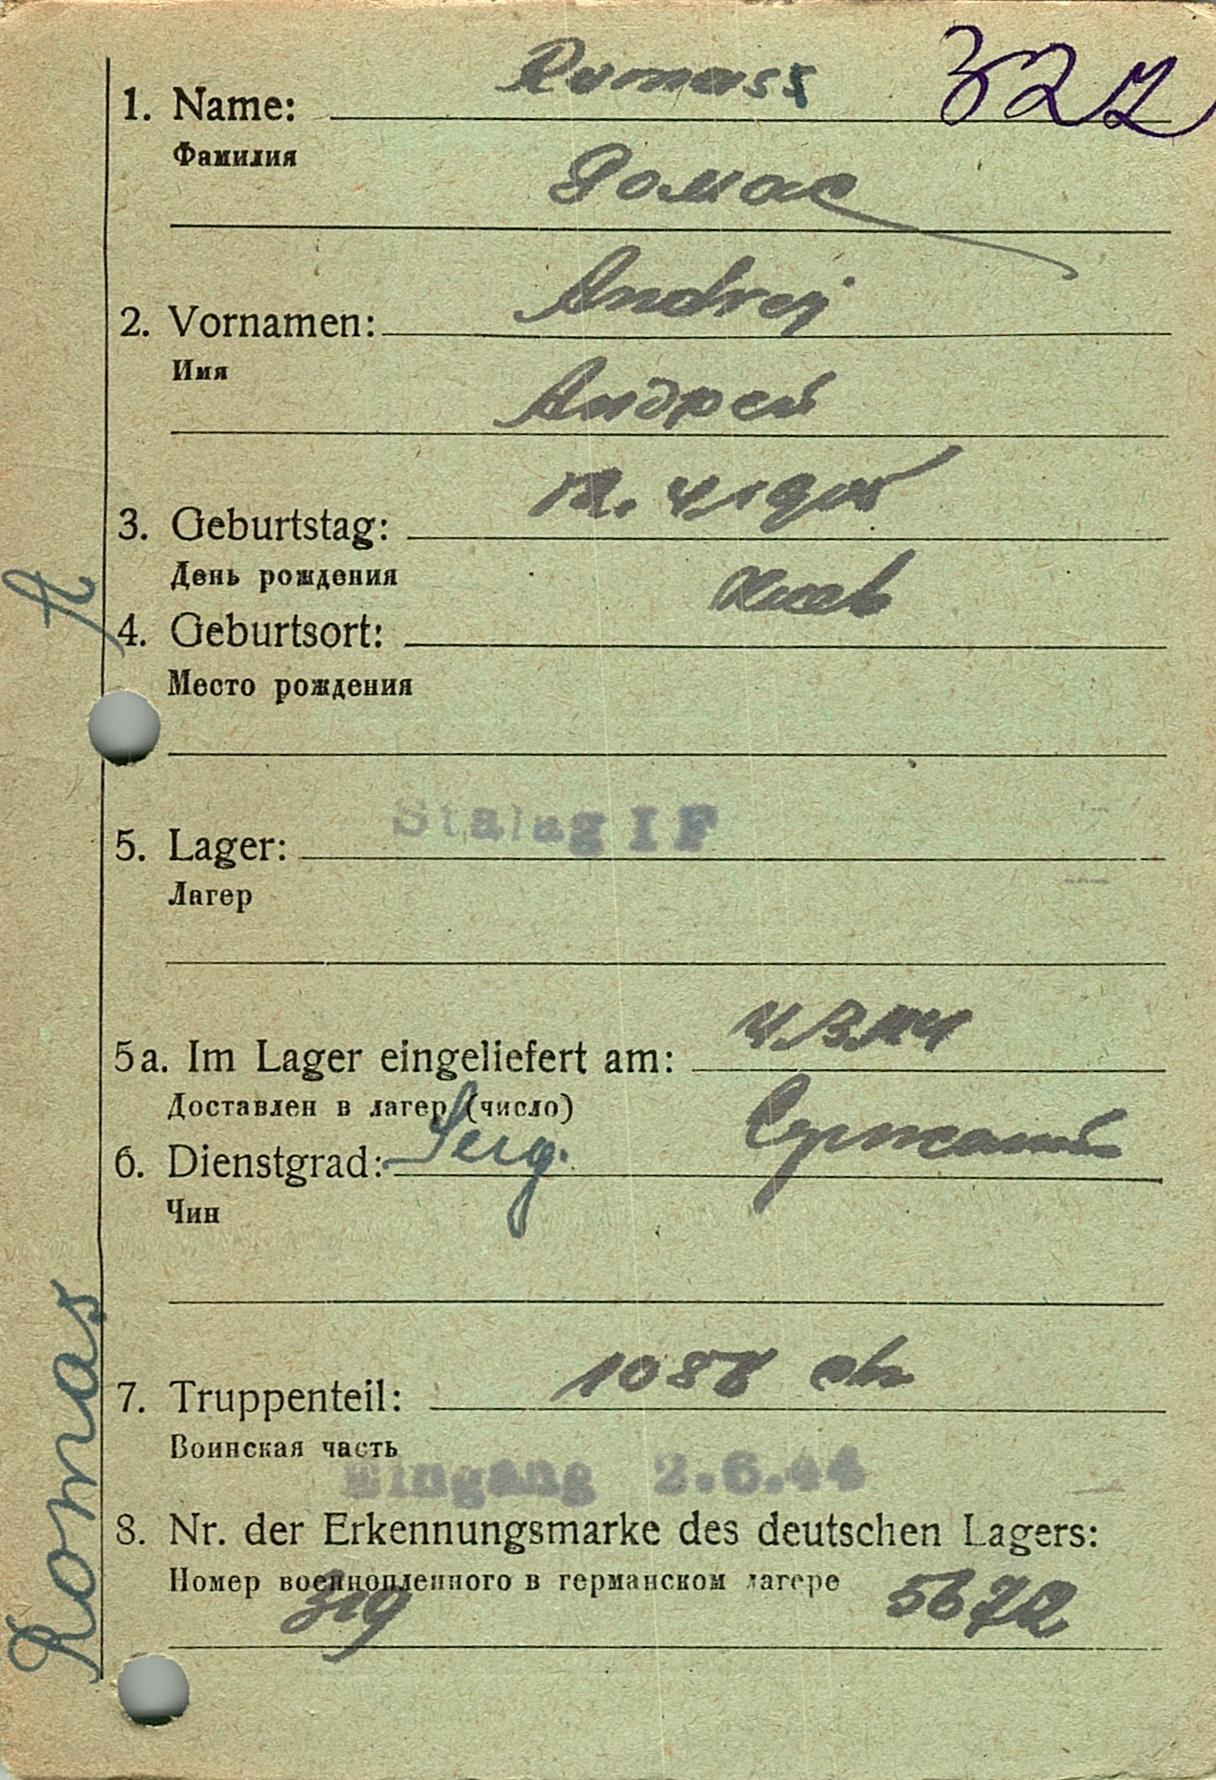 327
1. Name: Romass
Фамилия
Ромас
2. Vornamen: Andrej
Имя
Андрей
3. Geburtstag:
День рождения
4. Geburtsort: Киев
Место рождения
5. Lager: Stalag I F
Лагер
5a. Im Lager eingeliefert am:
Доставлен в лагер (число)
6. Dienstgrad: Serg. Сержант
Чин
7. Truppenteil: 1088
Воинская часть
Eingang 2.6.44
8. Nr. der Erkennungsmarke des deutschen Lagers:
Номер военнопленного в германском лагере
319 5672
A
Romas